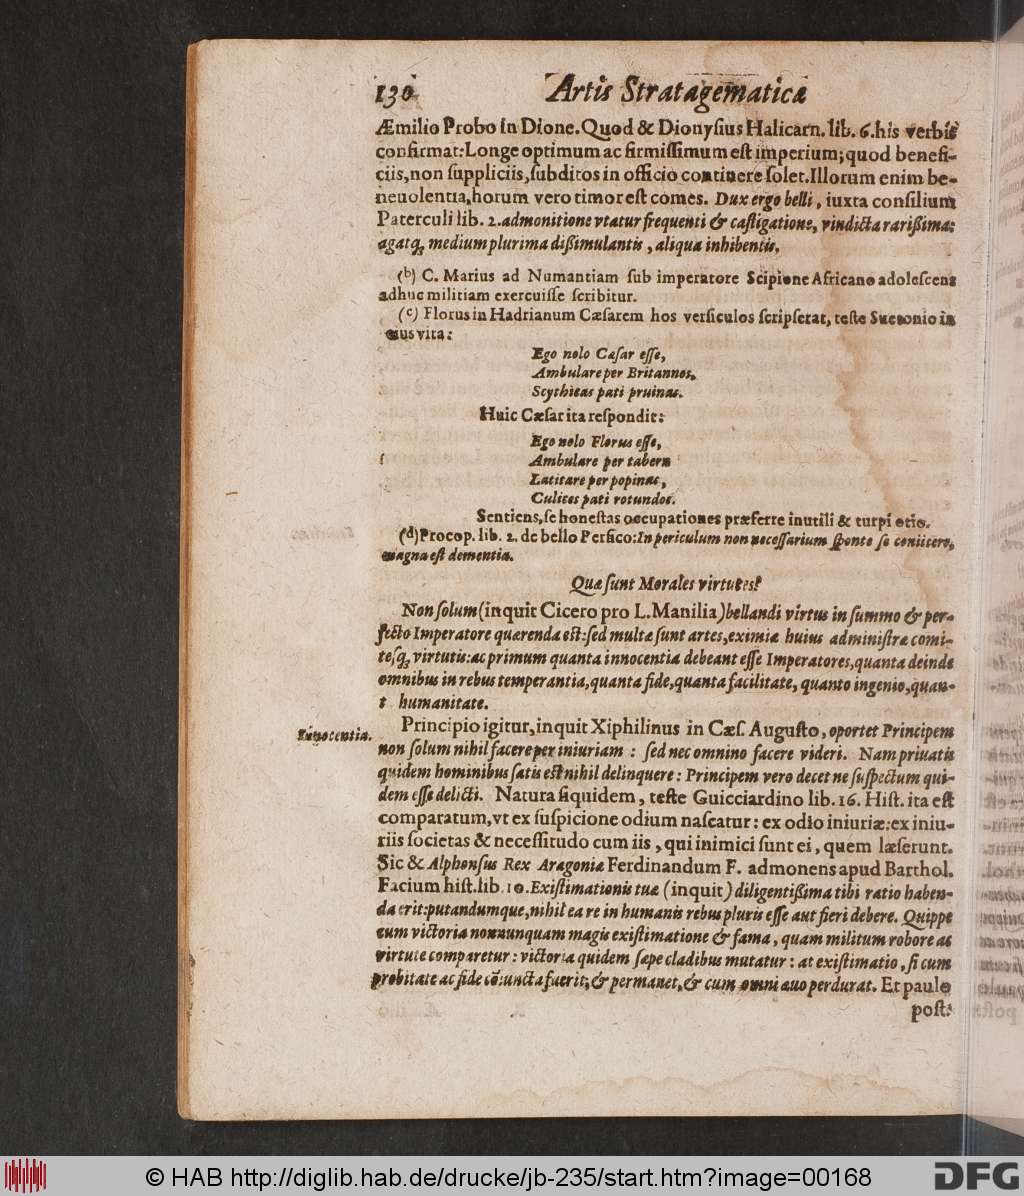 130 Artis Stratagematicæ
Æmilio Probo in Dione. Quod & Dionyſius Halicarn. lib. 6. his verbis
confirmat: Longe optimum ac firmiſſimum eſt imperium; quod benefi-
ciis, non ſuppliciis, ſubditos in officio continere ſolet. Illorum enim be-
neuolentia, horum vero timor eſt comes. Dux ergo belli, iuxta conſilium
Paterculi lib. 2. admonitione vtatur frequenti & caſtigatione, vindicta rarißima:
agatq́; medium plurima dißimulantis, aliqua inhibentis.
(b) C. Marius ad Numantiam ſub imperatore Scipione Africano adoleſcens
adhuc militiam exercuiſſe ſcribitur.
(c) Florus in Hadrianum Cæſarem hos verſiculos ſcripſerat, teſte Suetonio in
eius vita:
Ego nolo Cæſar eſſe,
Ambulare per Britannos,
Scythicas pati pruinas.
Huic Cæſar ita reſpondit:
Ego nolo Florus eſſe,
Ambulare per tabern
Latitare per popinas,
Culices pati rotundos.
Sentiens, ſe honeſtas occupationes præferre inutili & turpi otio.
(d) Procop. lib. 2. de bello Perſico: In periculum non neceſſarium ſponte ſe coniicere,
magna eſt dementia.
Quæ ſunt Morales virtutes?
Non ſolum (inquit Cicero pro L. Manilia) bellandi virtus in ſummo & per-
fecto Imperatore quærenda est: ſed multæ ſunt artes, eximiæ huius adminiſtræ comi-
teſq́; virtutis: ac primum quanta innocentia debeant eſſe Imperatores, quanta deinde
omnibus in rebus temperantia, quanta fide, quanta facilitate, quanto ingenio, quan-
t humanitate.
Innocentia.
Principio igitur, inquit Xiphilinus in Cæſ. Auguſto, oportet Principem
non ſolum nihil facere per iniuriam: ſed nec omnino facere videri. Nam priuatis
quidem hominibus ſatis est nihil delinquere: Principem vero decet ne ſuſpectum qui-
dem eſſe delicti. Natura ſiquidem, teſte Guicciardino lib. 16. Hiſt. ita eſt
comparatum, vt ex ſuſpicione odium naſcatur: ex odio iniuriæ: ex iniu-
riis ſocietas & neceſſitudo cum iis, qui inimici ſunt ei, quem læſerunt.
Sic & Alphonſus Rex Aragoniæ Ferdinandum F. admonens apud Barthol.
Facium hiſt. lib. 10. Exiſtimationis tuæ (inquit) diligentißima tibi ratio haben-
da erit: putandumque, nihil ea re in humanis rebus pluris eſſe aut fieri debere. Quippe
cum victoria nonnunquam magis exiſtimatione & fama, quam militum robore ac
virtute comparetur: victoria quidem ſæpe cladibus mutatur: at exiſtimatio, ſi cum
probitate ac fide cõiuncta fuerit, & permanet, & cum omni æuo perdurat. Et paulo
poſt:
© HAB http://diglib.hab.de/drucke/jb-235/start.htm?image=00168
DFG